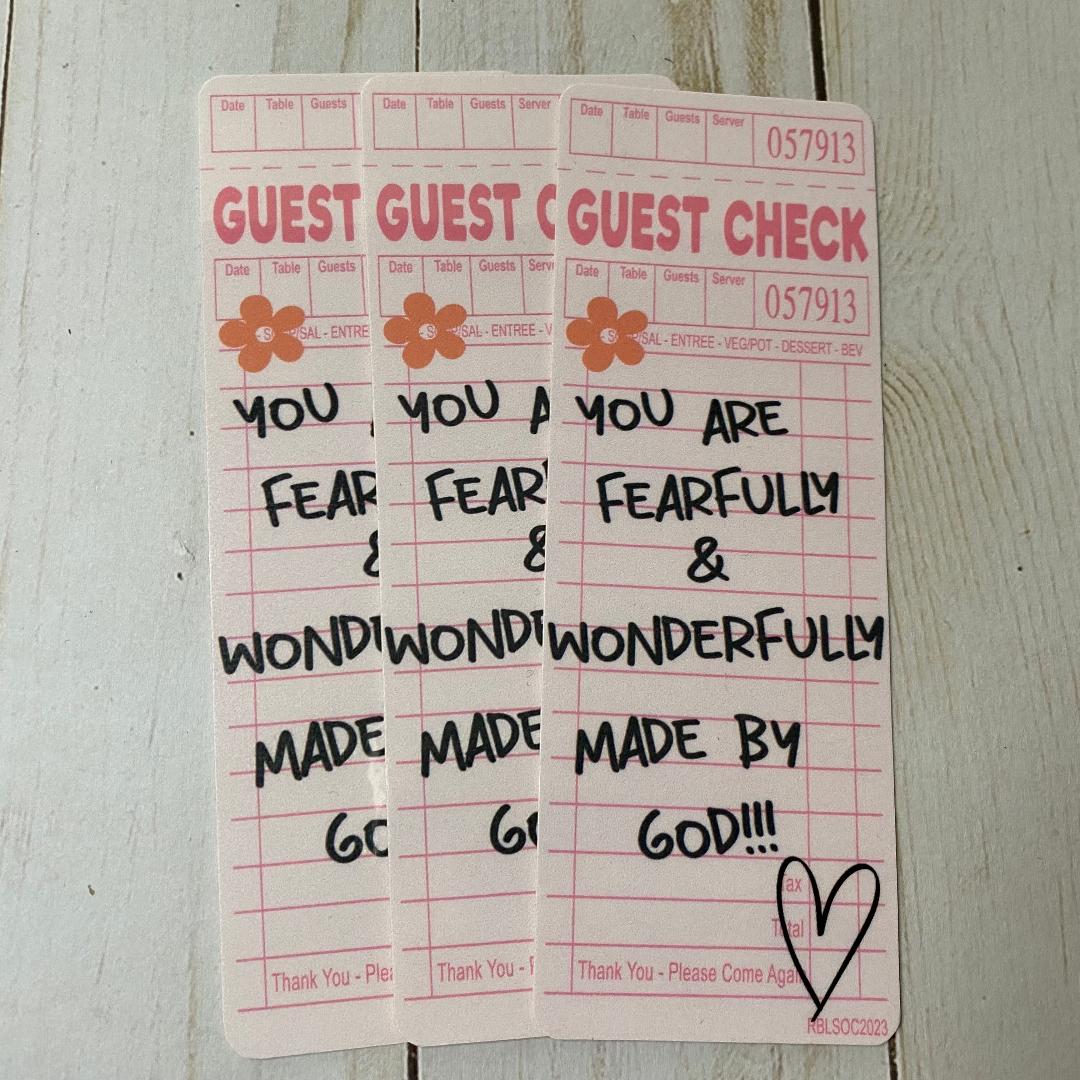 Date Table Guests
GUEST
Date Table Guests
/SAL - ENTRE
YOU
FEAR
&
WOND
MADE
GO
Thank You - Plea
Date Table Guests Server
GUEST C
Date Table Guests Serv
/SAL - ENTREE - V
YOU A
FEAR
&
WONDE
MADE
GO
Thank You - P
Date Table Guests Server 057913
GUEST CHECK
Date Table Guests Server 057913
/SAL - ENTREE - VEG/POT - DESSERT - BEV
YOU ARE
FEARFULLY
&
WONDERFULLY
MADE BY
GOD!!!
Tax
Total
Thank You - Please Come Again
RBLSOC2023